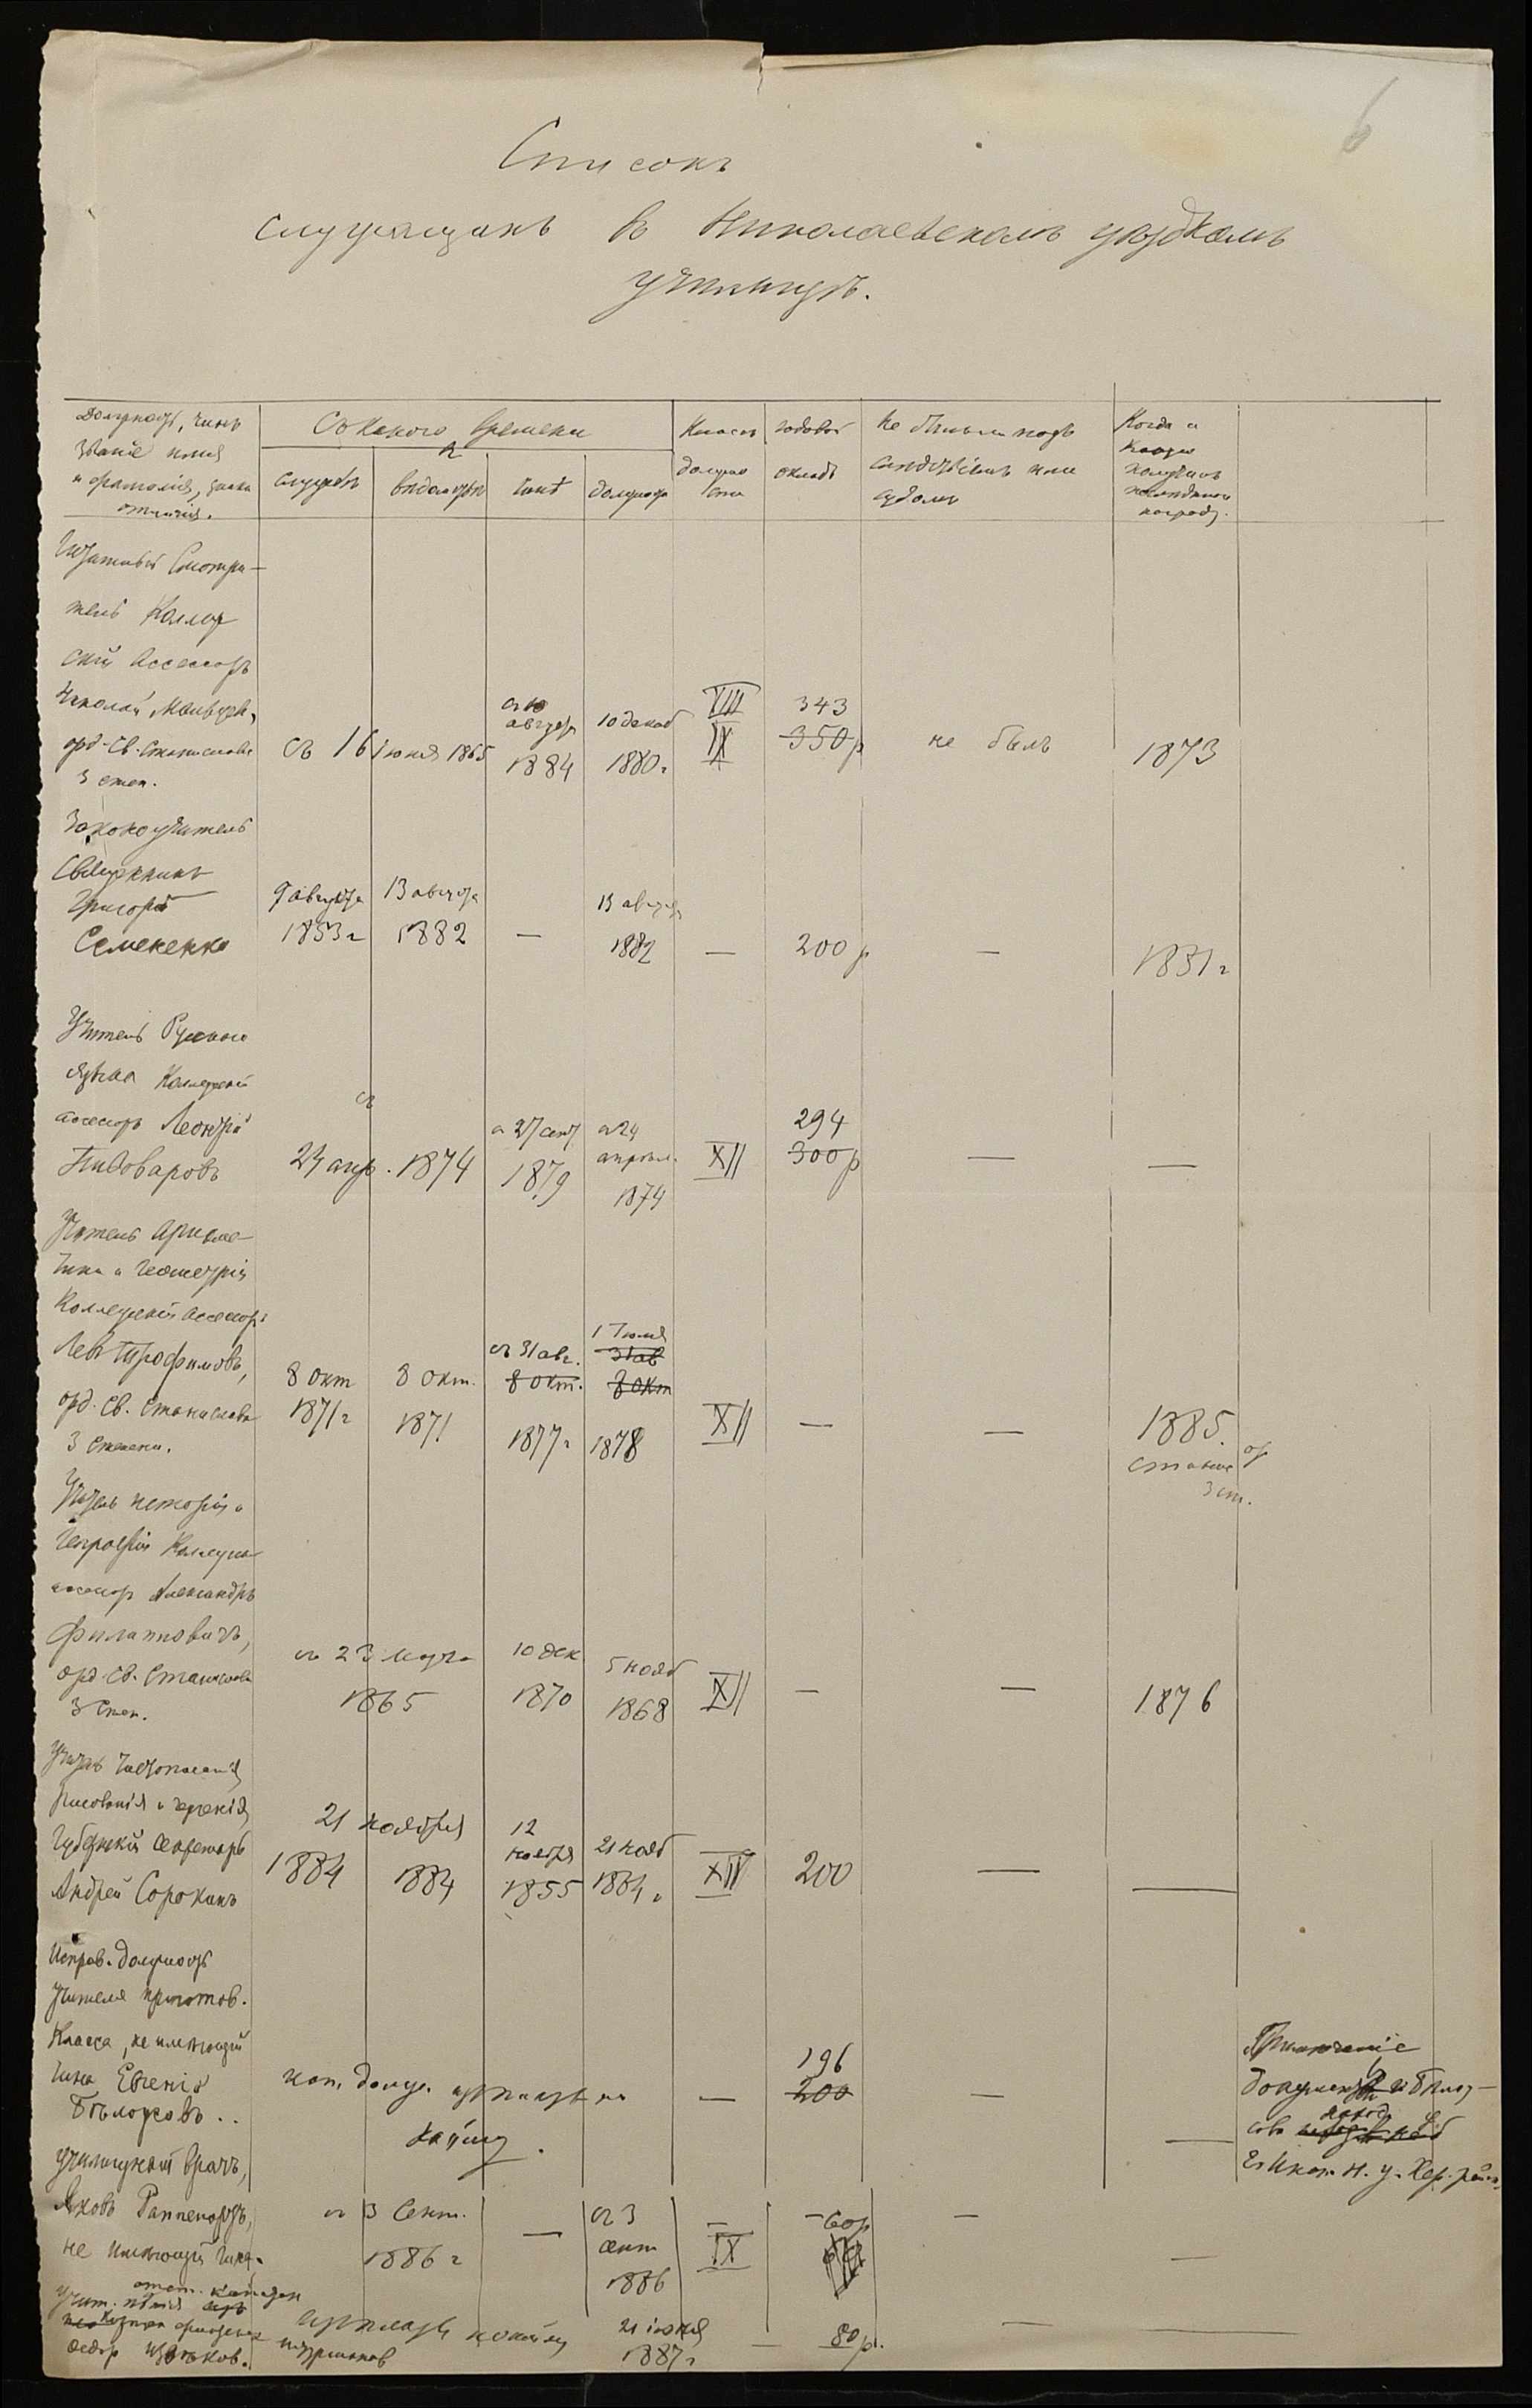 6
Списокъ
служащихъ въ Николаевскомъ уѣздномъ
училищѣ.
Должность, чинъ
званіе имя
и фамилія, знаки
отличія.
Съ какого времени
службѣ
вѣдомствѣ
чинѣ
должности
Классъ
должно
сти
годовой
окладъ
Не былъ ли подъ
слѣдствіемъ или
судомъ
Когда и
какую
получилъ
послѣднюю
награду.
Штатный Смотри-
тель Коллеж
скій Ассессоръ
Николай
орд. Св. Станислава
3 степ.
съ 16 іюня 1865
августа
1884
10 декаб
1880 г
VIII
IX
343
350 р
не былъ
1873
Законоучитель
Священникъ
Григорій
Семененко
9 августа
1853 г
13 августа
1882
—
13 августа
1882
—
200 р
—
1881 г
Учитель Русскаго
языка Коллежскій
ассесоръ Леонтій
Пивоваровъ
съ
24 апр. 1874
с 27 сент
1879
с 24
апрѣл.
1874
XII
294
300 р
—
—
Учитель Ариѳме-
тики и Геометріи
Коллежскій Ассесоръ
Левъ Трофимовъ,
орд. Св. Станислава
3 степени.
8 окт
1871 г
8 окт.
1871
съ 31 авг.
8 окт.
1877 г
1 Іюля
31 ав
8 окт
1878
XII
—
—
1885.
Станис ор
3 ст.
Учитель исторіи и
Географіи Коллеж
ассесор Александръ
Филипповичъ,
орд. Св. Станислава
3 степ.
съ 23 марта
1865
10 дек
1870
5 нояб
1868
XII
—
—
1876
Учитель Чистописанія
рисованія и черченія,
Губернскій Секретарь
Андрей Сорокинъ
21 ноября
1884
1884
12
ноября
1855
21 нояб
1884 г
XIV
200
—
—
Исправ. должность
учителя приготов.
класса, не имѣющій
чина Евгеній
Бѣлоусовъ..
исп. долж. по
найму.
—
196
200
—
—
документ
Училищный врачъ,
Яковъ Раппепортъ,
не имѣющій чина.
съ 3 Сент.
1886 г
—
съ 3
сент
1886
IX
60 р
—
—
Учит. пѣнія
Федор
по найму
21 іюня
1887 г
—
80 р.
—
—